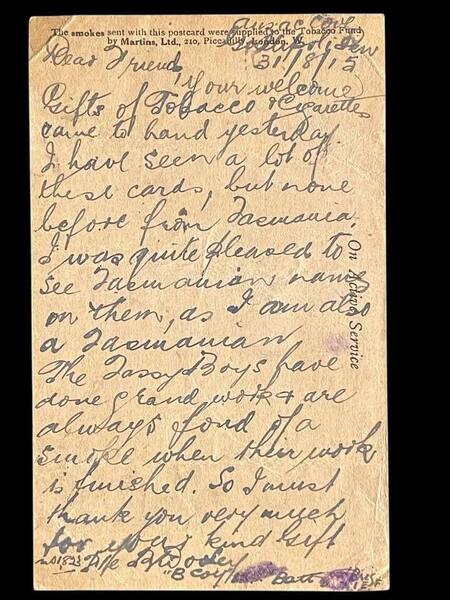 Anzac Cove
The smokes sent with this postcard were supplied to the Tobacco Fund
by Martins, Ltd., 210, Piccadilly, London, W.
31/8/15
Dear Friend,
Your welcome
Gifts of Tobacco & Cigarettes
came to hand yesterday.
I have seen a lot of
these cards, but none
before from Tasmania.
I was quite pleased to
see Tasmanian names
on them, as I am also
a Tasmanian
The Tassy Boys have
done grand work & are
always fond of a
smoke when their work
is finished. So I must
thank you very much
for your kind Gift
Pte
"B Coy Batt
On Active Service